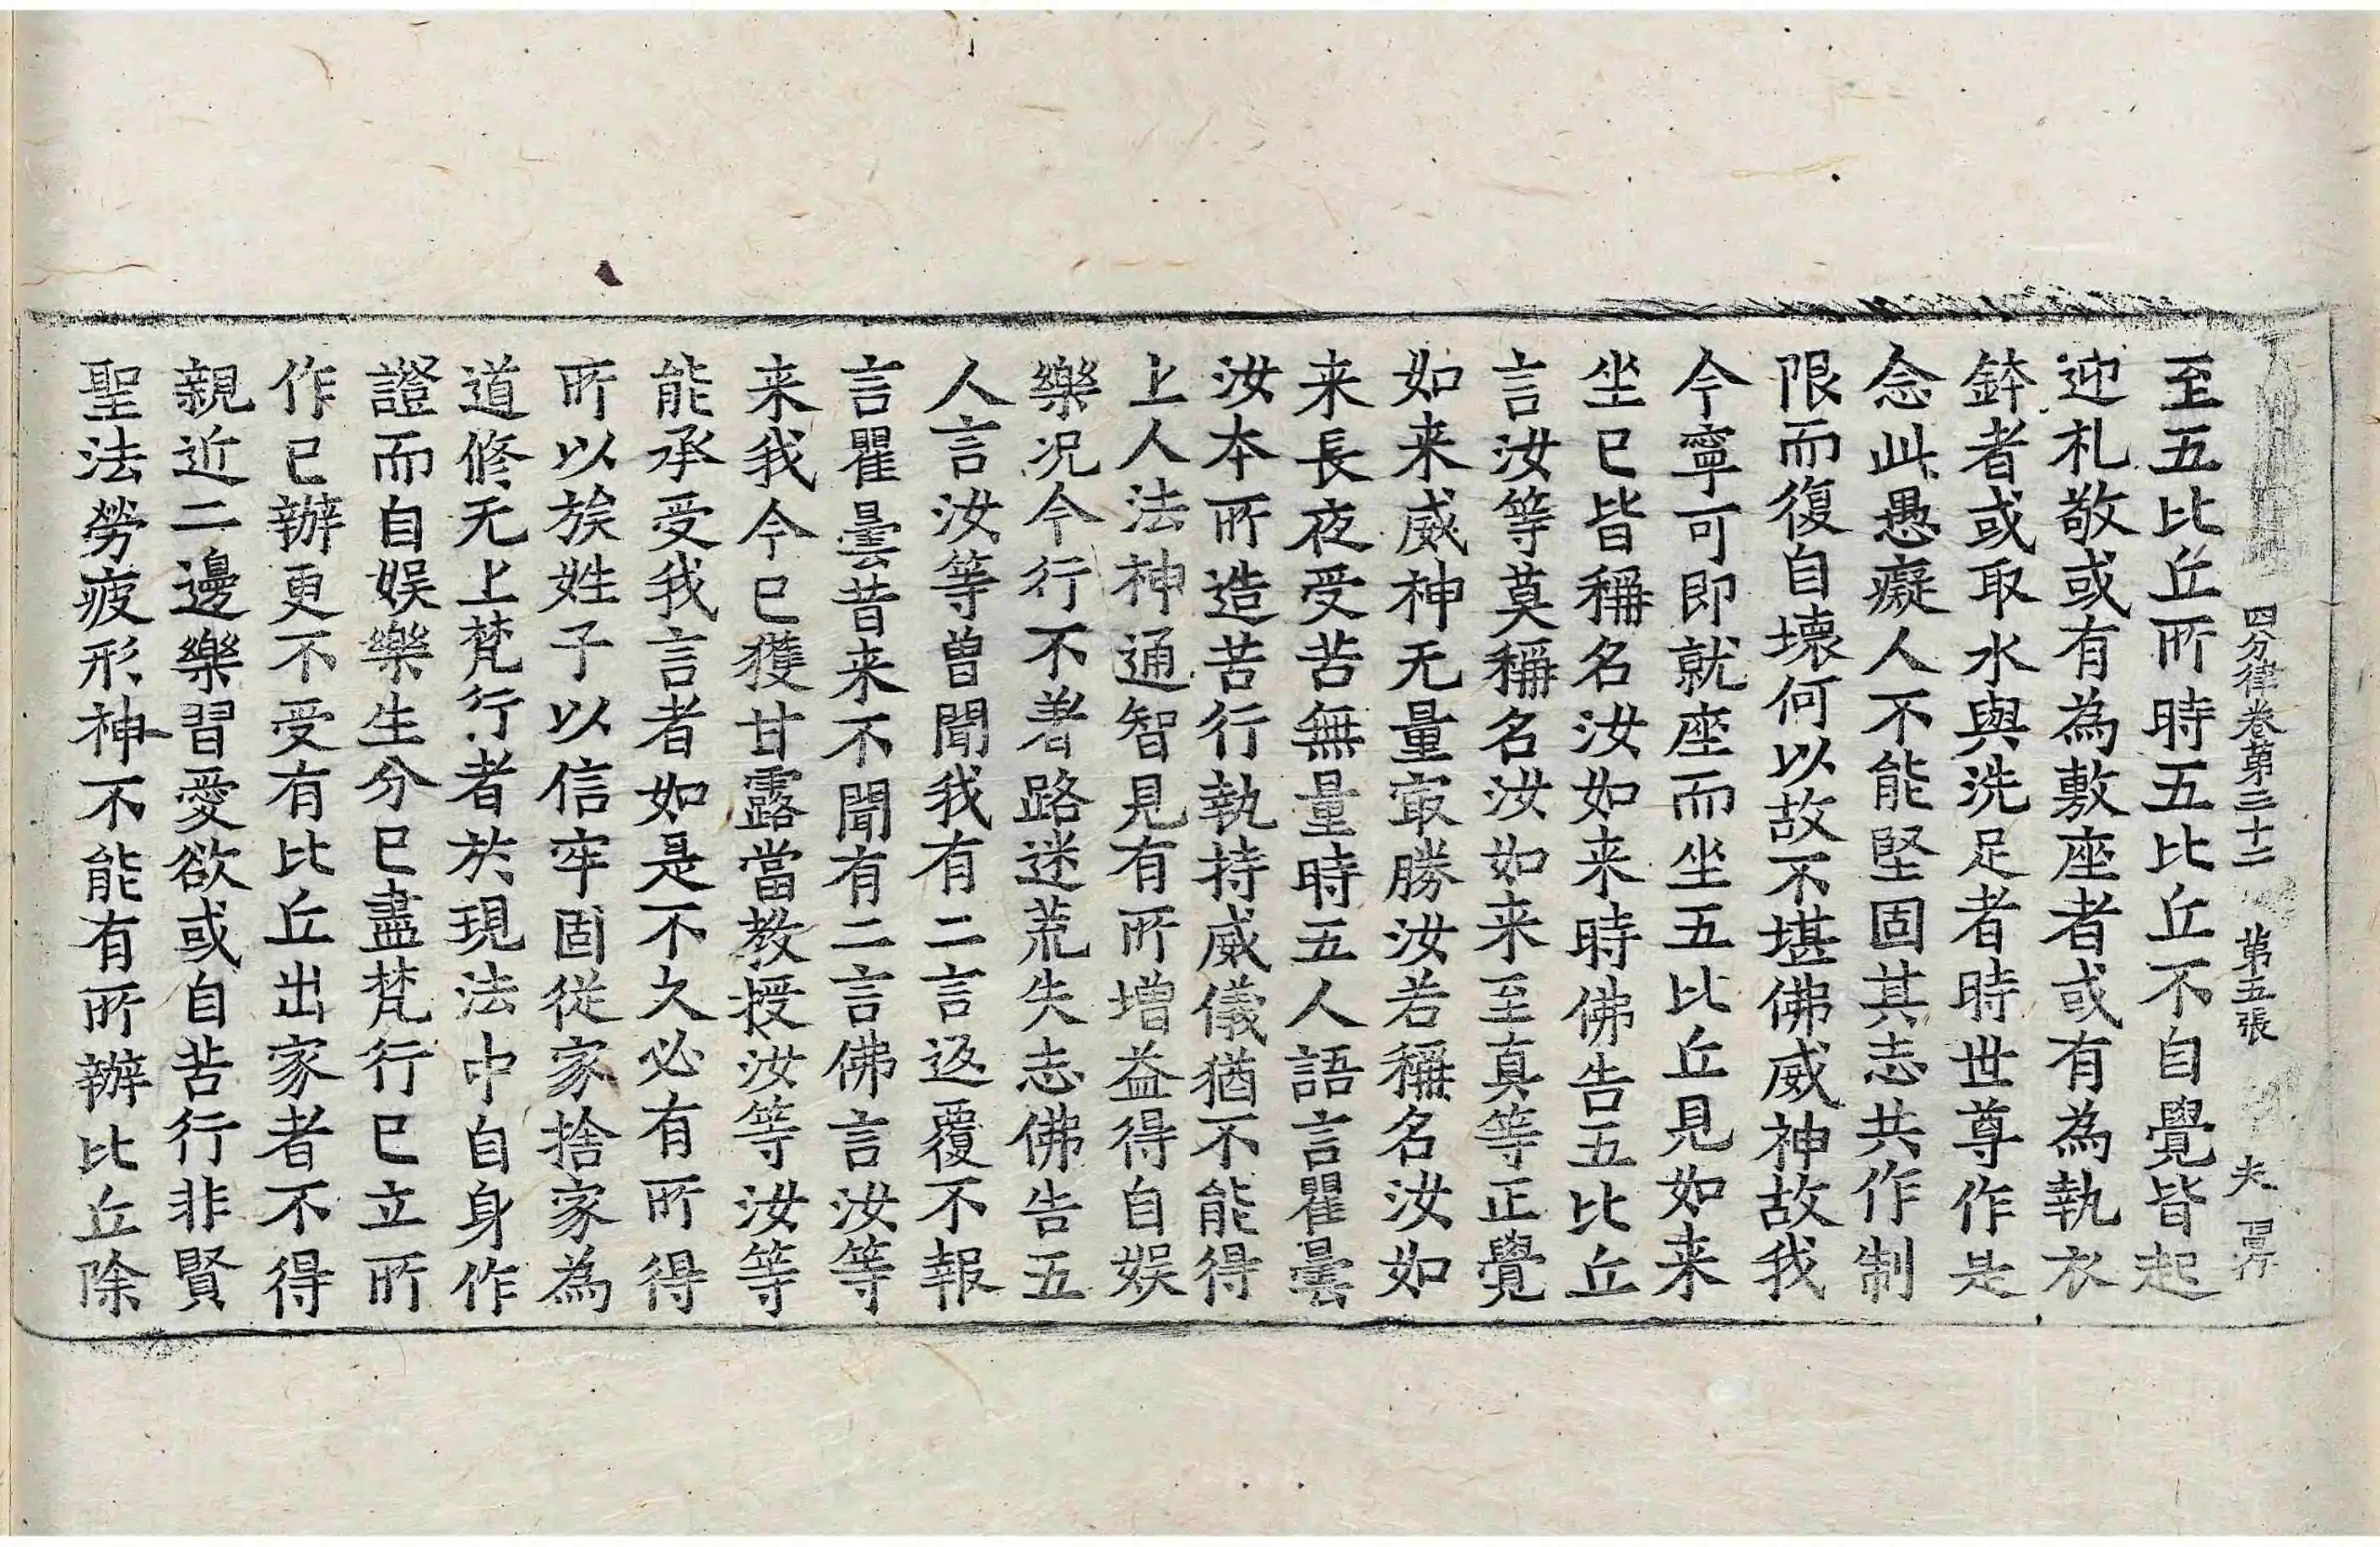 四分律卷第三十二 第五張 夫
至五比丘所時五比丘不自覺皆起
迎礼敬或有為敷座者或有為執衣
鉢者或取水與洗足者時世尊作是
念此愚癡人不能堅固其志共作制
限而復自壞何以故不堪佛威神故我
今寧可即就座而坐五比丘見如来
坐已皆稱名汝如来時佛告五比丘
言汝等莫稱名汝如来至真等正覺
如来威神无量冣勝汝若稱名汝如
来長夜受苦無量時五人語言瞿曇
汝本所造苦行執持威儀猶不能得
上人法神通智見有所增益得自娱
樂况今行不著路迷荒失志佛告五
人言汝等曽聞我有二言返覆不報
言瞿曇昔来不聞有二言佛言汝等
来我今已獲甘露當教授汝等汝等
能承受我言者如是不久必有所得
所以族姓子以信牢固從家捨家為
道修无上梵行者於現法中自身作
證而自娱樂生分已盡梵行已立所
作已辦更不受有比丘出家者不得
親近二邊樂習愛欲或自苦行非賢
聖法勞疲形神不能有所辦比丘除